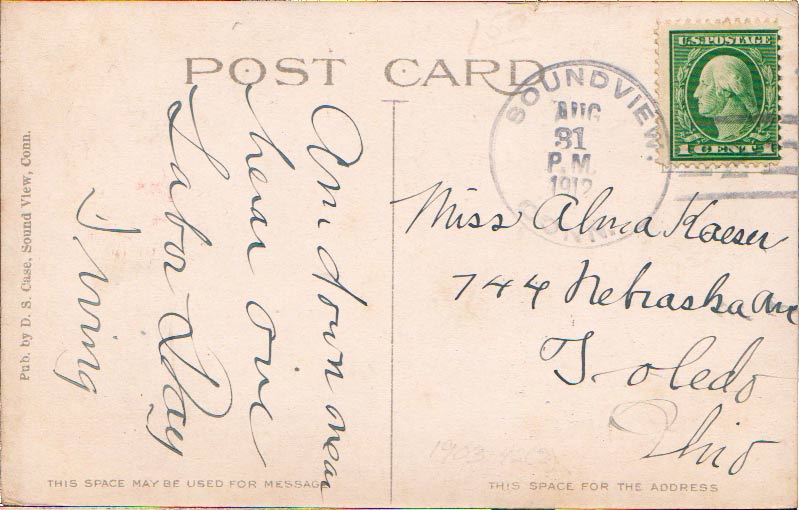 POST CARD
SOUNDVIEW
AUG
31
P.M.
1912
CONN.
U.S. POSTAGE
1 CENT 1
Pub. by D. S. Case, Sound View, Conn.
Am down near
hear over
Labor Day
Irving
Miss Alma Kaeser
744 Nebraska Ave
Toledo
Ohio
THIS SPACE MAY BE USED FOR MESSAGE
THIS SPACE FOR THE ADDRESS